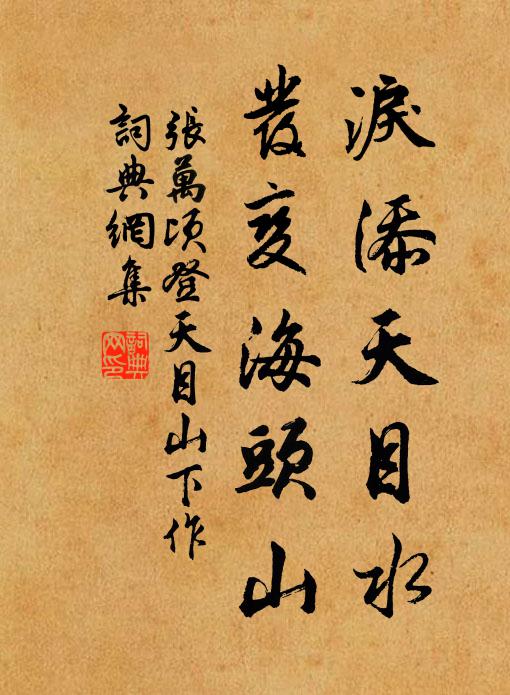 淚添天目水
發變海頭山
張萬頃登天目山下作
詞典網集
詞典網印